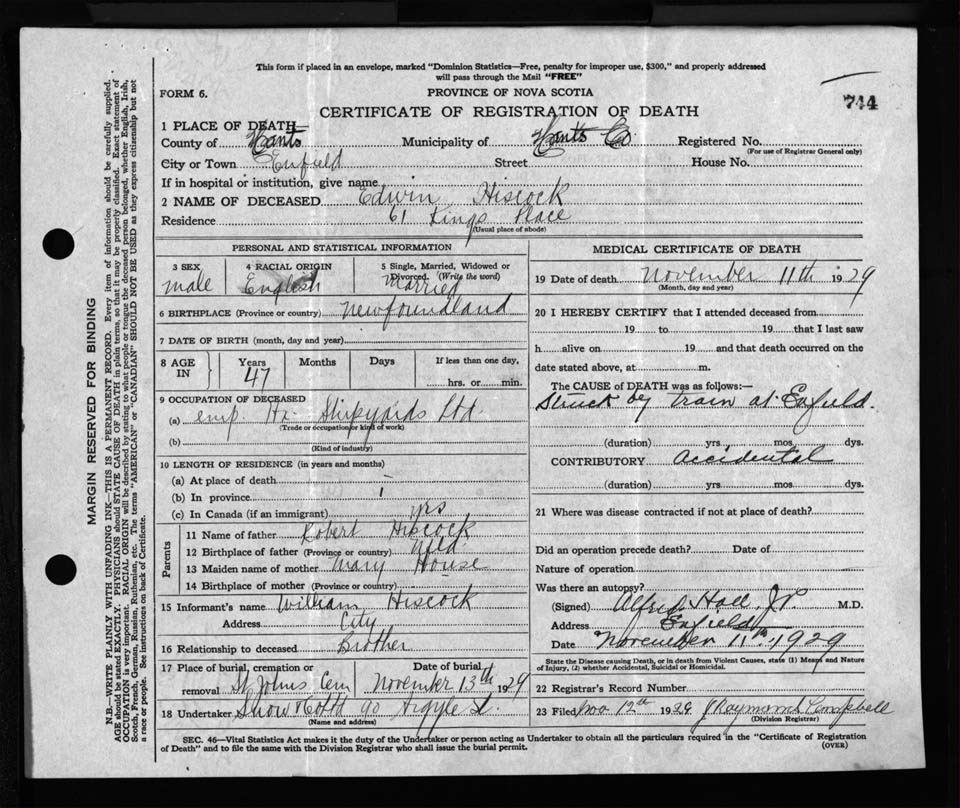 This form if placed in an envelope, marked "Dominion Statistics—Free, penalty for improper use, $300," and properly addressed
will pass through the Mail "FREE"
FORM 6.
PROVINCE OF NOVA SCOTIA
744
CERTIFICATE OF REGISTRATION OF DEATH
1 PLACE OF DEATH—
County of Hants Municipality of Hants Co Registered No.
(For use of Registrar General only)
City or Town Enfield Street House No.
If in hospital or institution, give name
2 NAME OF DECEASED Edwin Hiscock
Residence 61 Kings Place
(Usual place of abode)
PERSONAL AND STATISTICAL INFORMATION
3 SEX
male
4 RACIAL ORIGIN
English
5 Single, Married, Widowed or
Divorced. (Write the word)
Married
6 BIRTHPLACE (Province or country) Newfoundland
7 DATE OF BIRTH (month, day and year)
8 AGE IN
Years
47
Months
Days
If less than one day,
hrs. or min.
9 OCCUPATION OF DECEASED
(a) emp Hx. Shipyards Ltd.
(Trade or occupation or kind of work)
(b)
(Kind of industry)
10 LENGTH OF RESIDENCE (in years and months)
(a) At place of death -
(b) In province 1
(c) In Canada (if an immigrant) yrs
Parents
11 Name of father Robert Hiscock
12 Birthplace of father (Province or country) Nfld.
13 Maiden name of mother Mary House
14 Birthplace of mother (Province or country)
15 Informant's name William Hiscock
Address City
16 Relationship to deceased Brother
17 Place of burial, cremation or
removal St Johns Cem
Date of burial
November 13th 1929
18 Undertaker Snow 90 Argyle St.
(Name and address)
MEDICAL CERTIFICATE OF DEATH
19 Date of death November 11th 1929
(Month, day and year)
20 I HEREBY CERTIFY that I attended deceased from
19 to 19 that I last saw
h alive on 19 and that death occurred on the
date stated above, at m.
The CAUSE OF DEATH was as follows:—
Struck by train at Enfield.
(duration) yrs. mos. dys.
CONTRIBUTORY Accidental
(duration) yrs. mos. dys.
21 Where was disease contracted if not at place of death?
Did an operation precede death? Date of
Nature of operation
Was there an autopsy?
(Signed) Alfred Hall J.P. M.D.
Address Enfield
Date November 11th 1929
State the Disease causing Death, or in death from Violent Causes, state (1) Means and Nature
of Injury, (2) whether Accidental, Suicidal or Homicidal.
22 Registrar's Record Number
23 Filed Nov 12th 1929 J Raymond Campbell
(Division Registrar)
SEC. 46—Vital Statistics Act makes it the duty of the Undertaker or person acting as Undertaker to obtain all the particulars required in the "Certificate of Registration
of Death" and to file the same with the Division Registrar who shall issue the burial permit.
(OVER)
MARGIN RESERVED FOR BINDING
N.B.—WRITE PLAINLY WITH UNFADING INK—THIS IS A PERMANENT RECORD. Every item of information should be carefully supplied.
AGE should be stated EXACTLY. PHYSICIANS should STATE CAUSE OF DEATH in plain terms, so that it may be properly classified. Exact statement of
OCCUPATION is very important. RACIAL ORIGIN will be described by stating to what people or tongue the deceased person belonged, whether English, Irish,
Scotch, French, German, Russian, Ruthenian, etc. The terms "AMERICAN" or "CANADIAN" SHOULD NOT BE USED as they express citizenship but not
a race or people. See instructions on back of Certificate.